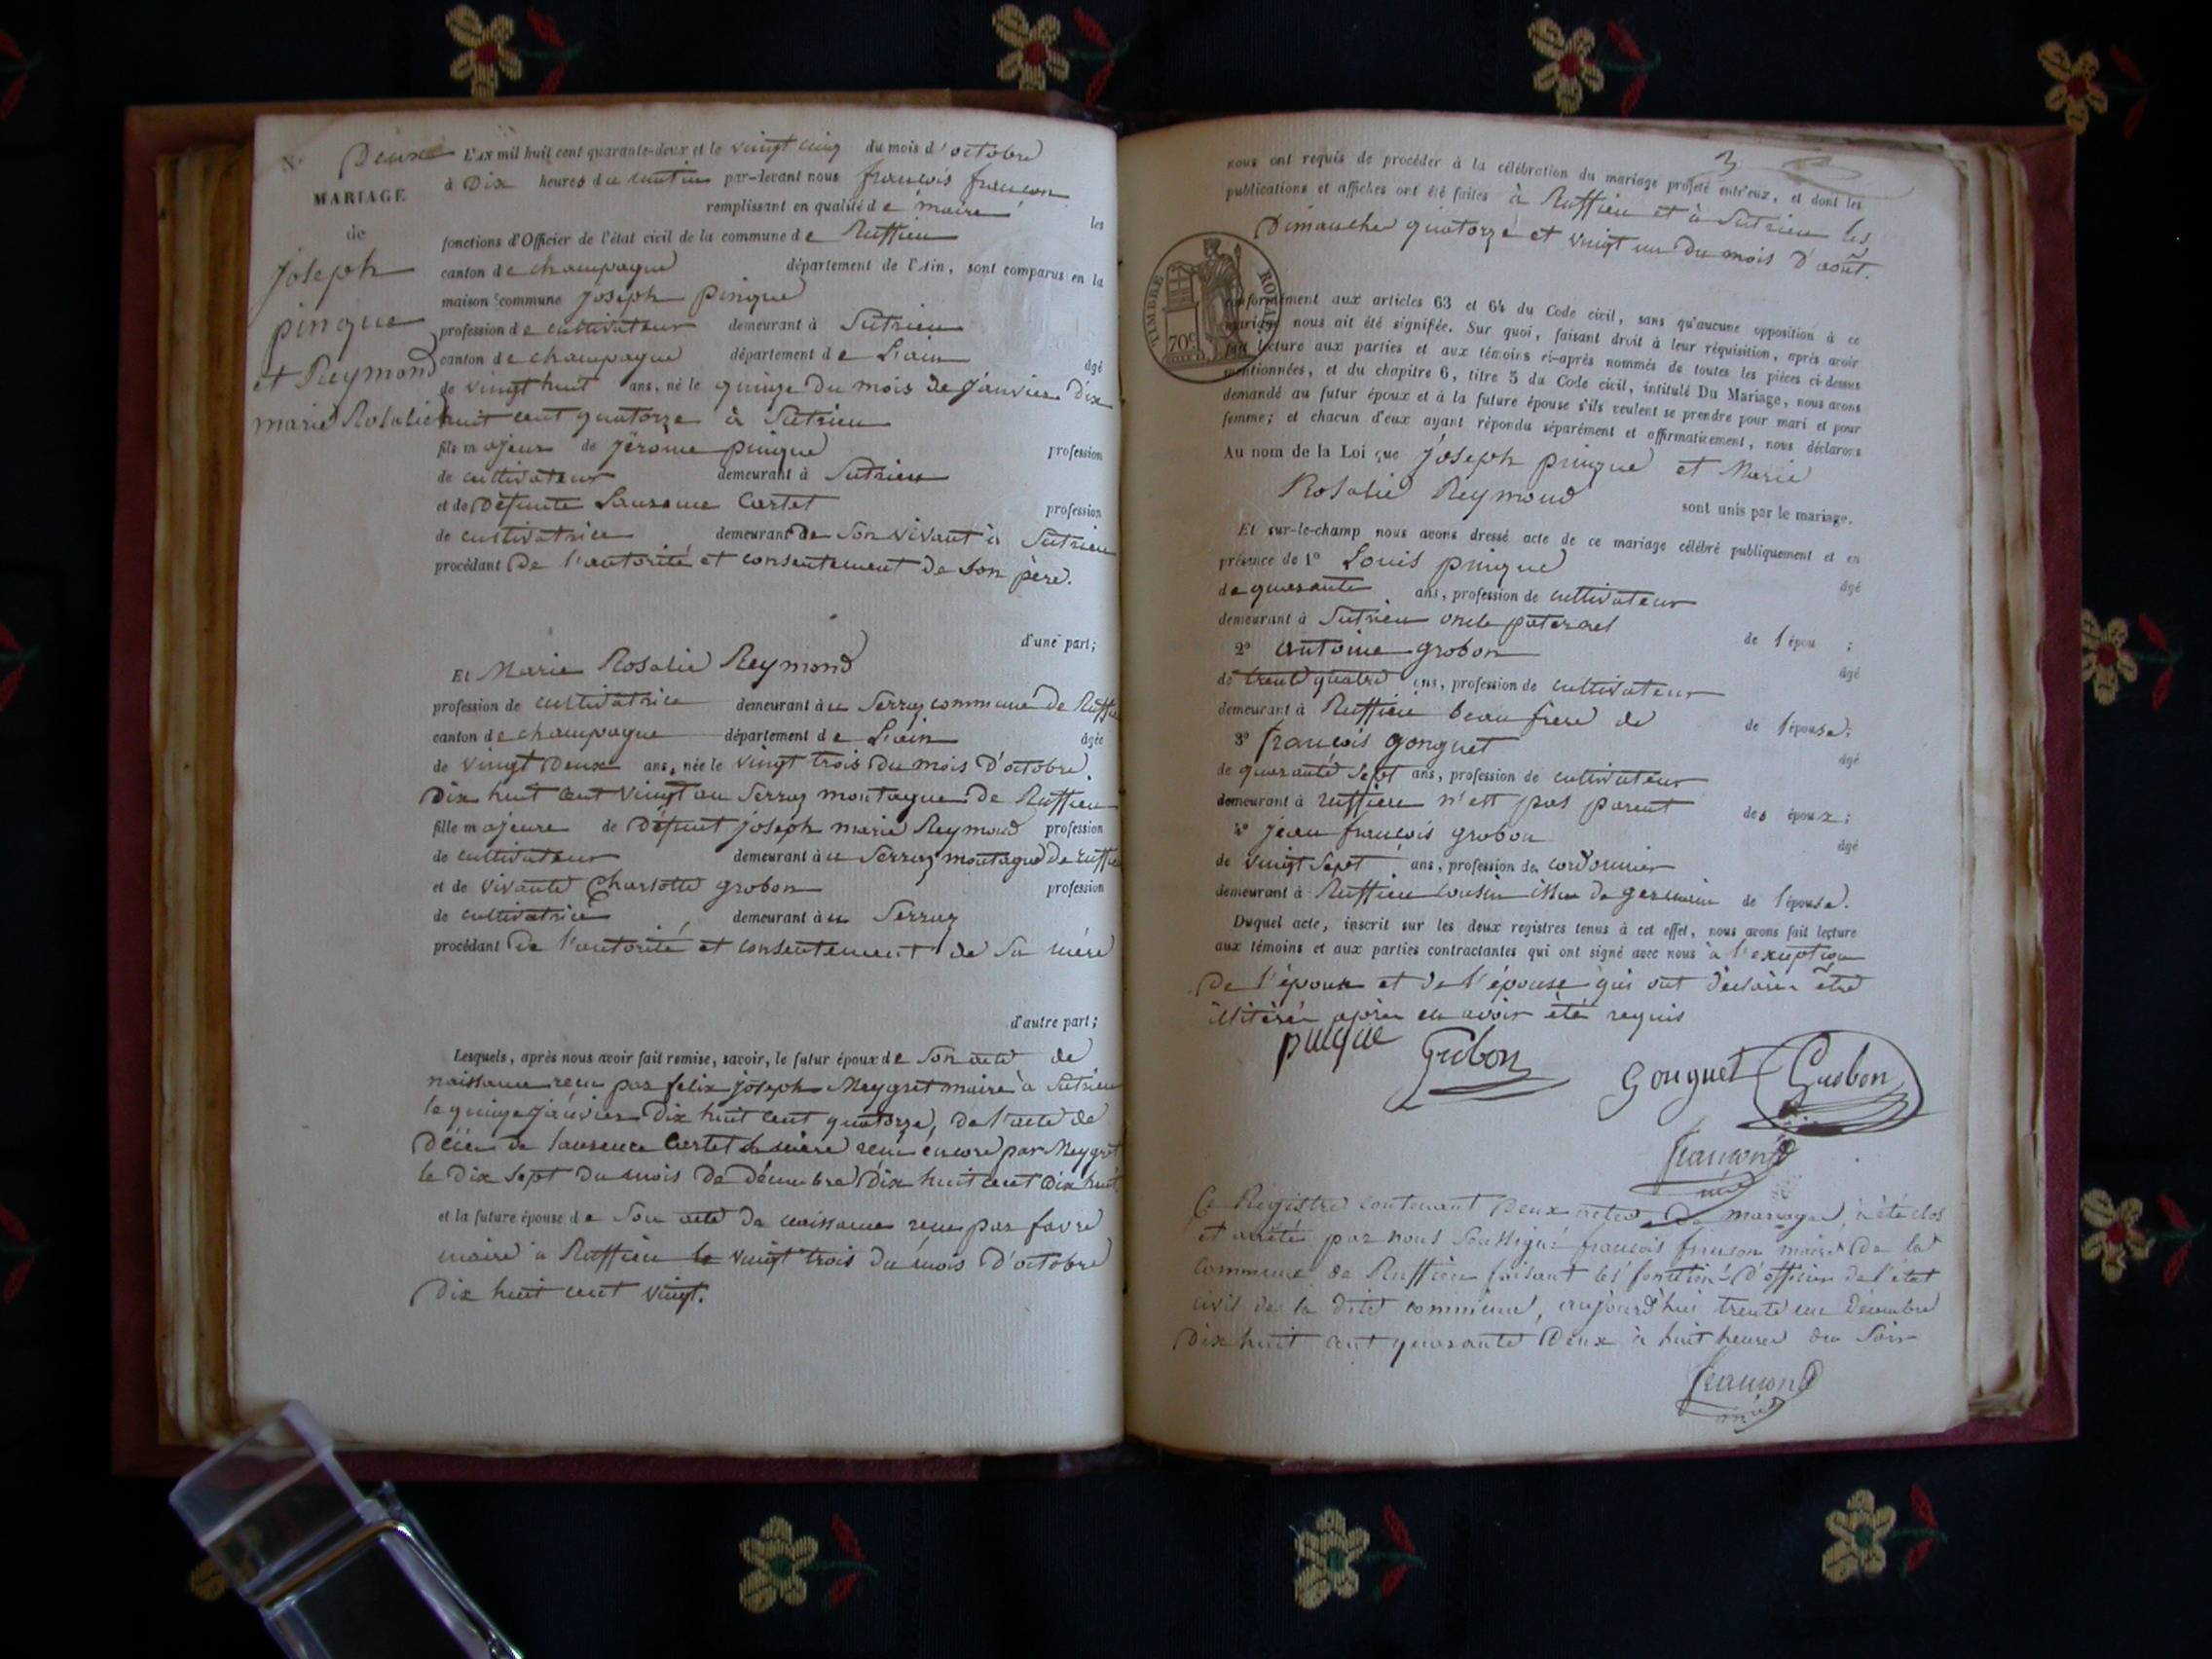 N.° Deuxe
MARIAGE
de
joseph
pingue
et Reymond
marie Rosalie
L'AN mil huit cent quarante-deux et le vingt cinq du mois d'octobre
à Dix heures du matin par-devant nous françois françon
remplissant en qualité de maire les
fonctions d'Officier de l'état civil de la commune de Ruffieu
canton de champagne département de l'Ain, sont comparus en la
maison commune joseph pingue
profession de cultivateur demeurant à Sutrieu
canton de champagne département de L'ain âgé
de vingt huit ans, né le quinze du mois de janvier Dix
huit cent quatorze à Sutrieu
fils majeur de jérome pingue profession
de cultivateur demeurant à Sutrieu
et de Défunte Laurence Cartet profession
de cultivatrice demeurant de son vivant à Sutrieu
procédant De l'autorité et consentement de son père.
d'une part;
Et Marie Rosalie Reymond
profession de cultivatrice demeurant au Serroy commune de Ruffieu
canton de champagne département de L'ain âgée
de vingt Deux ans, née le vingt trois du mois D'octobre
Dix huit cent vingt au Serroy montagne de Ruffieu
fille majeure de Défunt joseph marie Reymond profession
de cultivateur demeurant au Serroy montagne de ruffieu
et de vivante Charlotte grobon profession
de cultivatrice demeurant au Serroy
procédant De l'autorité et consentement de Sa mère
d'autre part;
Lesquels, après nous avoir fait remise, savoir, le futur époux de Son acte de
naissance reçu par felix joseph Meygret maire à Sutrieu
le quinze janvier Dix huit cent quatorze, De l'acte de
Décès de laurence Cartet sa mère reçu encore par Meygret
le Dix sept du mois de Décembre Dix huit cent Dix huit
et la future épouse de Son acte de naissance reçu par favre
maire à Ruffieu le vingt trois du mois D'octobre
Dix huit cent vingt.
3
nous ont requis de procéder à la célébration du mariage projeté entr'eux, et dont les
publications et affiches ont été faites à Ruffieu et à Sutrieu les
Dimanche quatorze et vingt un du mois D'août.
TIMBRE ROYAL
70c
conformément aux articles 63 et 64 du Code civil, sans qu'aucune opposition à ce
mariage nous ait été signifiée. Sur quoi, faisant droit à leur réquisition, après avoir
fait lecture aux parties et aux témoins ci-après nommés de toutes les pièces ci-dessus
mentionnées, et du chapitre 6, titre 5 du Code civil, intitulé Du Mariage, nous avons
demandé au futur époux et à la future épouse s'ils veulent se prendre pour mari et pour
femme; et chacun d'eux ayant répondu séparément et affirmativement, nous déclarons
Au nom de la Loi que joseph pingue et Marie
Rosalie Reymond sont unis par le mariage.
Et sur-le-champ nous avons dressé acte de ce mariage célébré publiquement et en
présence de 1° Louis pingue âgé
de quarante ans, profession de cultivateur
demeurant à Sutrieu oncle paternel de l'épou ;
2° antoine grobon âgé
de trente quatre ans, profession de cultivateur
demeurant à Ruffieu beau frere de de l'épouse;
3° françois gonguet âgé
de quarante Sept ans, profession de cultivateur
demeurant à ruffieu n'est pas parent des époux;
4° jean françois grobon âgé
de vingt Sept ans, profession de cordonnier
demeurant à Ruffieu cousin issu de germain de l'épouse.
Duquel acte, inscrit sur les deux registres tenus à cet effet, nous avons fait lecture
aux témoins et aux parties contractantes qui ont signé avec nous à l'exeption
De l'époux et de l'épouse qui ont déclarer être
illitérér après en avoir été requis
pingue Grobon Gonguet Grobon
françon
Ce Régistre contenant Deux actes de mariage, à été clos
et arrêté par nous Soussigné françois françon maire de la
commune de Ruffieu faisant les fonctions D'officier de l'état
civil de la dite commune, aujourd'hui trente un Décembre
Dix huit cent quarante Deux à huit heures du Soir
françon